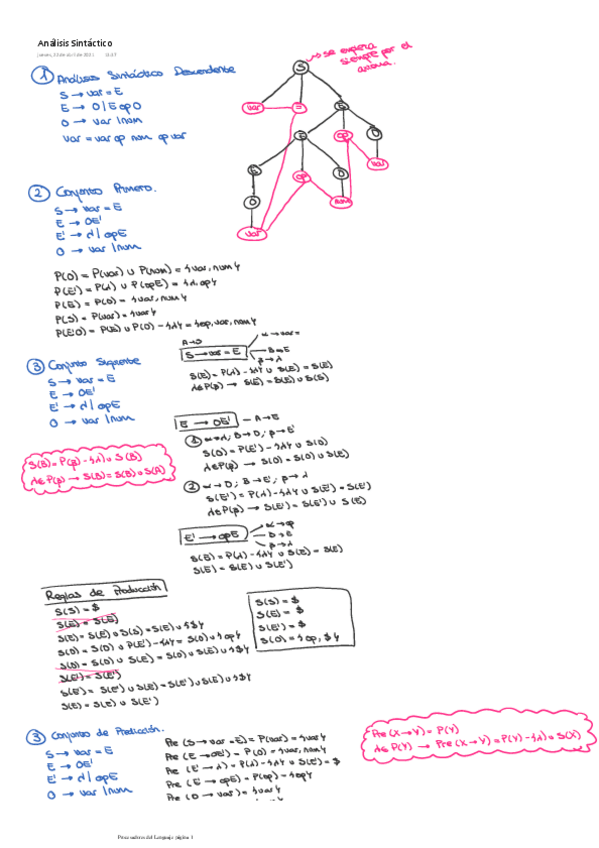 Análisis Sintáctico
① Análisis Sintáctico Descendente
S → var = E
E → O | E op O
O → var | num
var = var op num op var
se espera
siempre por el
S
var
=
E
E
op
O
E
op
O
var
O
num
var
② Conjunto Primero.
S → var = E
E → OE'
E' → λ | opE
O → var | num
P(O) = P(var) ∪ P(num) = {var, num}
P(E') = P(λ) ∪ P(opE) = {λ, op}
P(E) = P(O) = {var, num}
P(S) = P(var) = {var}
P(E'O) = P(E') ∪ P(O) - {λ} = {op, var, num}
③ Conjunto Siguiente
S → var = E
E → OE'
E' → λ | opE
O → var | num
A → S
S → var = E
α → var =
B → E
β → λ
S(E) = P(λ) - {λ} ∪ S(E) = S(E)
λ∈P(β) → S(E) = S(E) ∪ S(S)
S(B) = P(β) - {λ} ∪ S(B)
λ∈P(β) → S(B) = S(B) ∪ S(A)
E → OE' — A → E
① α → λ, B → O, β → E'
S(O) = P(E') - {λ} ∪ S(O)
λ∈P(β) → S(O) = S(O) ∪ S(E)
② α → O; B → E'; β → λ
S(E') = P(λ) - {λ} ∪ S(E') = S(E')
λ∈P(β) → S(E') = S(E') ∪ S(E)
E' → opE
α → op
B → E
β → λ
S(E) = P(λ) - {λ} ∪ S(E) = S(E)
S(E) = S(E) ∪ S(E')
Reglas de Producción
S(S) = $
S(E) = S(E)
S(E) = S(E) ∪ S(S) = S(E) ∪ {$}
S(O) = S(O) ∪ P(E') - {λ} = S(O) ∪ {op}
S(O) = S(O) ∪ S(E) = S(O) ∪ S(E) ∪ {$}
S(E') = S(E')
S(E') = S(E') ∪ S(E) = S(E') ∪ S(E) ∪ {$}
S(E) = S(E) ∪ S(E')
S(S) = $
S(E) = $
S(E') = $
S(O) = {op, $}
③ Conjunto de Predicción.
S → var = E
E → OE'
E' → λ | opE
O → var | num
Pre (S → var = E) = P(var) = {var}
Pre (E → OE') = P(O) = {var, num}
Pre (E' → λ) = P(λ) - {λ} ∪ S(E') = $
Pre (E' → opE) = P(op) = {op}
Pre (O → var) = {var}
Pre (X → Y) = P(Y)
λ∈P(Y) → Pre (X → Y) = P(Y) - {λ} ∪ S(X)
Procesadores del Lenguaje página 1